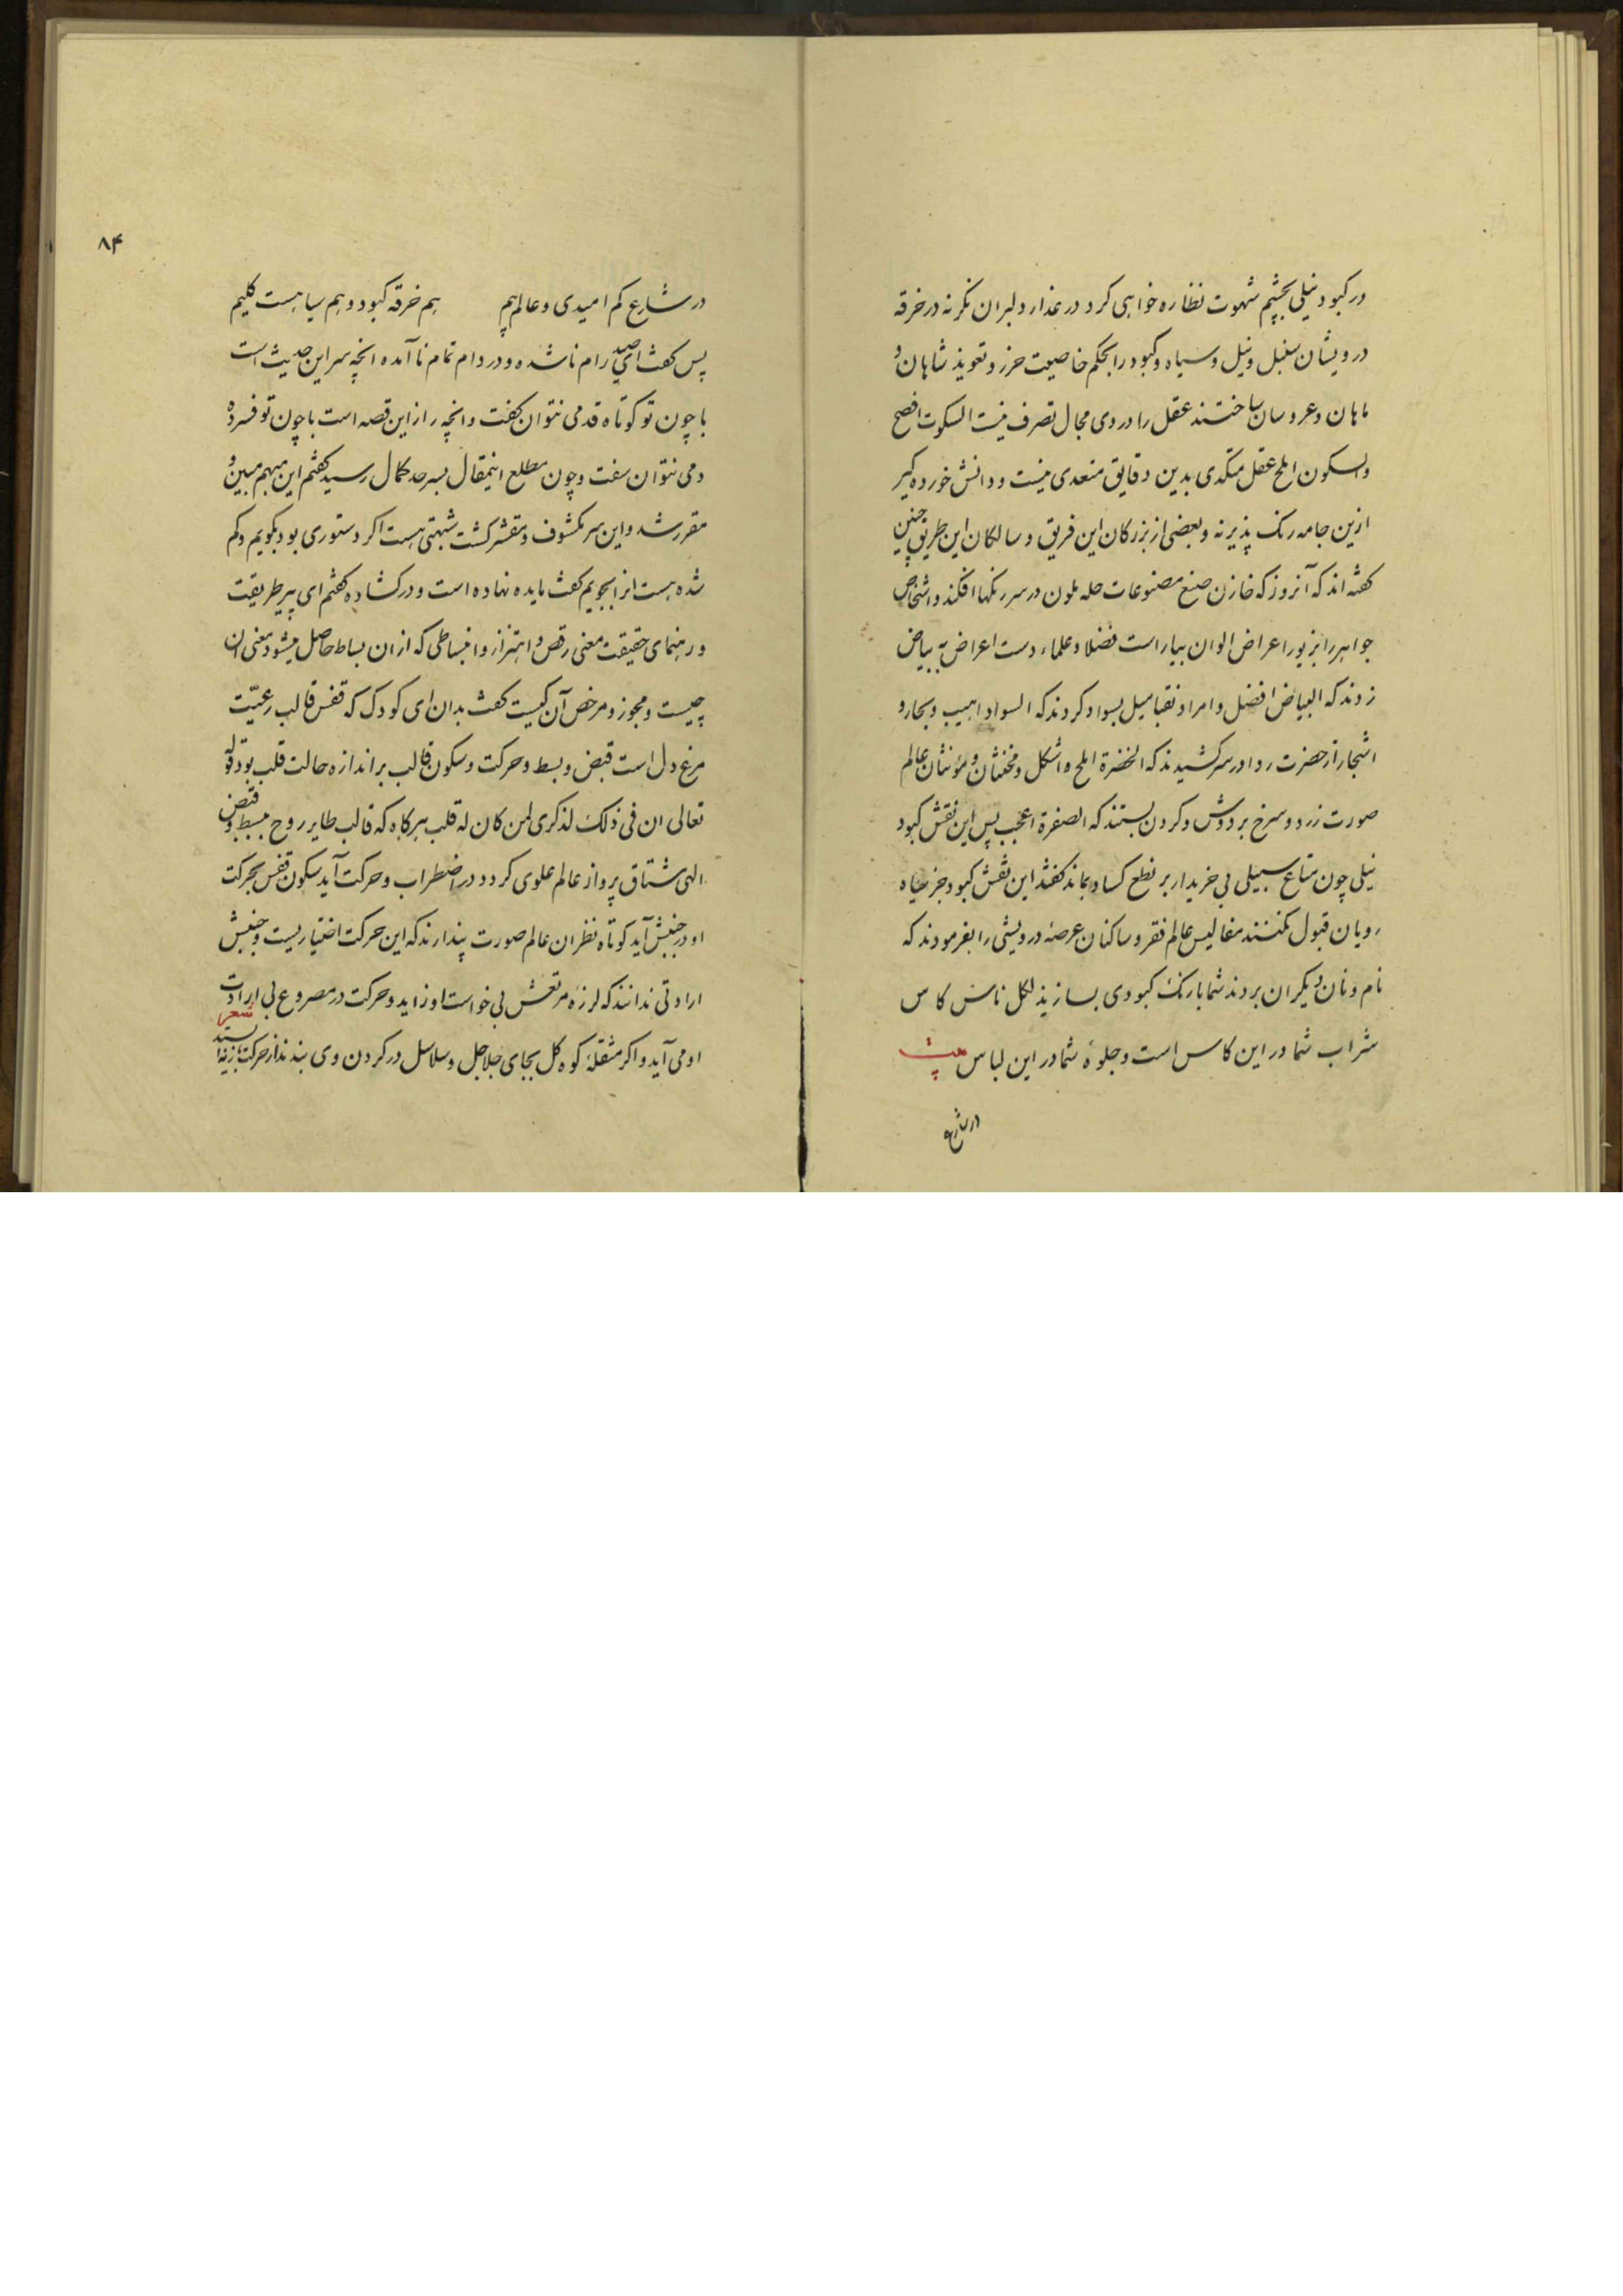 در کبود نیلی بچشم شهوت نظاره خواهی کرد در عذار دلبران نکر نه در خرقه
درویشان سنبل و نیل و سیاه و کبود را بحکم خاصیت حرز و تعویذ شاهان و
ماهان و عروسان ساختند عقل را در وی مجال تصرف نیست السکوت افصح
والسکون املح عقل متکدی بدین دقایق متعدی نیست و دانش خورده کیر
ازین جامه رنک پذیر نه و بعضی از بزرکان این فریق و سالکان این طریق چنین
کفته اند که آنروز که خازن صنع مصنوعات حله ملون در سر رنکها افکند و اشخاص
جواهر را بزیور اعراض الوان بیاراست فضلا و علماء دست اعراض به بیاض
زدند که البیاض افضل و امرا و نقبا میل بسواد کردند که السواد اهیب و بحار و
اشجار از حضرت ردا در سر کشیدند که الخضرة املح و اشکل و مخنثان و مؤنثان عالم
صورت زرد و سرخ بر دوش و کردن بستند که الصفرة اعجب پس این نقش کبود
نیلی چون متاع سبیلی بی خریدار بر نطع کساد بماند کفتند این نقش کبود جز سیاه
رویان قبول نکنند مفالیس عالم فقر و ساکنان عرصهٔ درویشی را بفرمودند که
نام و نان دیکران بردند شما با رنک کبودی بسازید لکل ناس کاس
شراب شما در این کاس است و جلوهٔ شما در این لباس بیت
در شارع
۸۴
در شارع کم امیدی و عالم بیم هم خرقه کبود و هم سیاهست کلیم
پس کفت ای صید رام ناشده و در دام تمام ناآمده انچه سر این حدیث است
با چون تو کوتاه قدمی نتوان کفت و انچه راز این قصه است با چون تو فسرده
دمی نتوان سفت و چون مطلع اینمقال بسرحد کمال رسید کفتم این مبهم مبین و
مقرر شد و این سر مکشوف و مقشر کشت شبهتی هست اکر دستوری بود بکویم و کم
شده هست انرا بجویم کفت مایده نهاده است و در کشاده کفتم ای پیر طریقت
و رهنمای حقیقت معنی رقص و اهتزاز و انبساطی که از ان بساط حاصل میشود معنی ان
چیست و مجوز و مرخص آن کیست کفت بدان ای کودک که قفس قالب رعیّت
مرغ دل است قبض و بسط و حرکت و سکون قالب بر اندازه حالت قلب بود قوله
تعالی ان فی ذلک لذکری لمن کان له قلب هرکاه که قالب طایر روح ببسط و قبض
الهی مشتاق پرواز عالم علوی کردد در اضطراب و حرکت آید سکون قفس بحرکت
او در جنبش آید کوتاه نظران عالم صورت پندارند که این حرکت اختیاریست و جنبش
ارادتی ندانند که لرزهٔ مرتعش بی خواست او زاید و حرکت در مصروع بی ارادت
او می آید و اکر مثقلهٔ کوه کل بجای جلاجل و سلاسل در کردن وی بندند از حرکت باز نه ایستد شعر